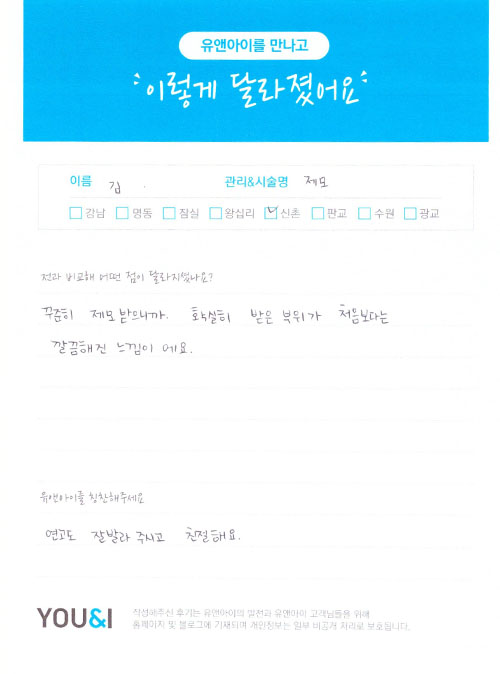 유앤아이를 만나고
이렇게 달라졌어요
이름 김 . 관리&시술명 제모
강남 명동 잠실 왕십리 신촌 판교 수원 광교
전과 비교해 어떤 점이 달라지셨나요?
꾸준히 제모 받으니까. 확실히 받은 부위가 처음보다는
깔끔해진 느낌이 에요.
유앤아이를 칭찬해주세요
연고도 잘발라 주시고 친절해요.
YOU&I
작성해주신 후기는 유앤아이의 발전과 유앤아이 고객님들을 위해
홈페이지 및 블로그에 기재되며 개인정보는 일부 비공개 처리로 보호됩니다.